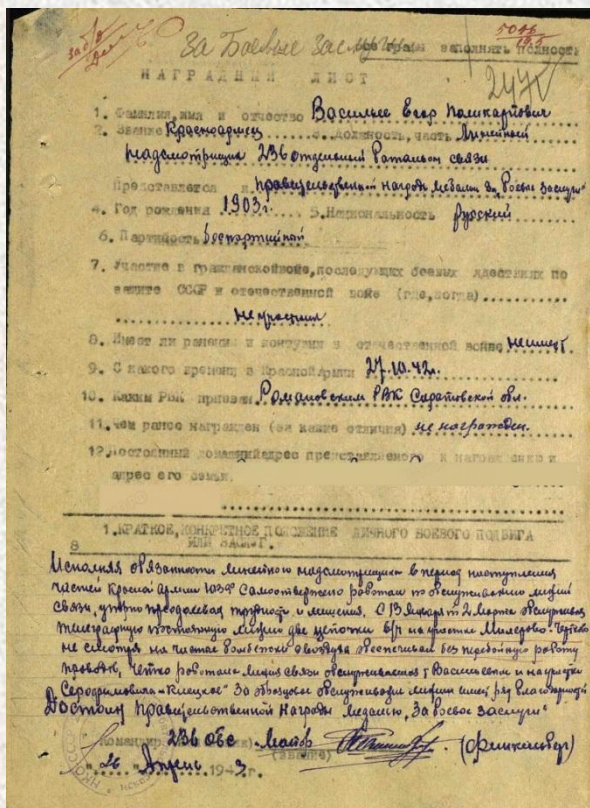 За Боевые заслуги
все графы заполнять полность
5046
247
НАГРАДНЫЙ ЛИСТ
1. Фамилия, имя и отчество Васильев Егор Поликарпович
2. Звание Красноармеец 3. Должность, часть Линейный
надсмотрщик 236 отдельный батальон связи
Представляется к правительственной награде медали „За Боевые заслуги"
4. Год рождения 1903 г. 5. Национальность русский
6. Партийность беспартийный
7. Участие в гражданской войне, последующих боевых действиях по
защите СССР и отечественной войне (где, когда)
не участвовал
8. Имеет ли ранения и контузии в отечественной войне не имеет
9. С какого времени в Красной Армии 27.10.42 г.
10. Каким РВК призван Романовским РВК Саратовской обл.
11. Чем ранее награжден (за какие отличия) не награжден.
12. Постоянный домашний адрес представляемого к награждению и
адрес его семьи.
1. КРАТКОЕ, КОНКРЕТНОЕ ИЗЛОЖЕНИЕ ЛИЧНОГО БОЕВОГО ПОДВИГА
ИЛИ ЗАСЛУГ.
8
Исполняя обязанности линейного надсмотрщика в период наступления
частей Красной Армии ЮЗФ самоотверженно работал по обслуживанию линий
связи, упорно преодолевая трудности и лишения. С 13 Января по 2 Марта обслуживал
телеграфную постоянную линию две цепочки на участке Миллерово-Чертково
не смотря на частые бомбежки с воздуха обеспечивал бесперебойную работу
проводов, четко работала линия связи обслуживаемая т Васильевым и на участке
Серафимович-Клецкое. За образцовое обслуживание линии имеет ряд благодарностей
Достоин правительственной награды медалью „За боевые заслуги"
Командир 236 ОБС Майор (Финкельбер)
(звание)
„26" Апрель 1943 г.